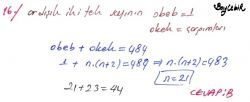 16/ ardışık iki tek sayının obeb = 1
okek = çarpımları
obeb + okek = 484
1 + n.(n+2) = 484 ⇒ n.(n+2) = 483
n=21
21+23=44
CEVAP:B